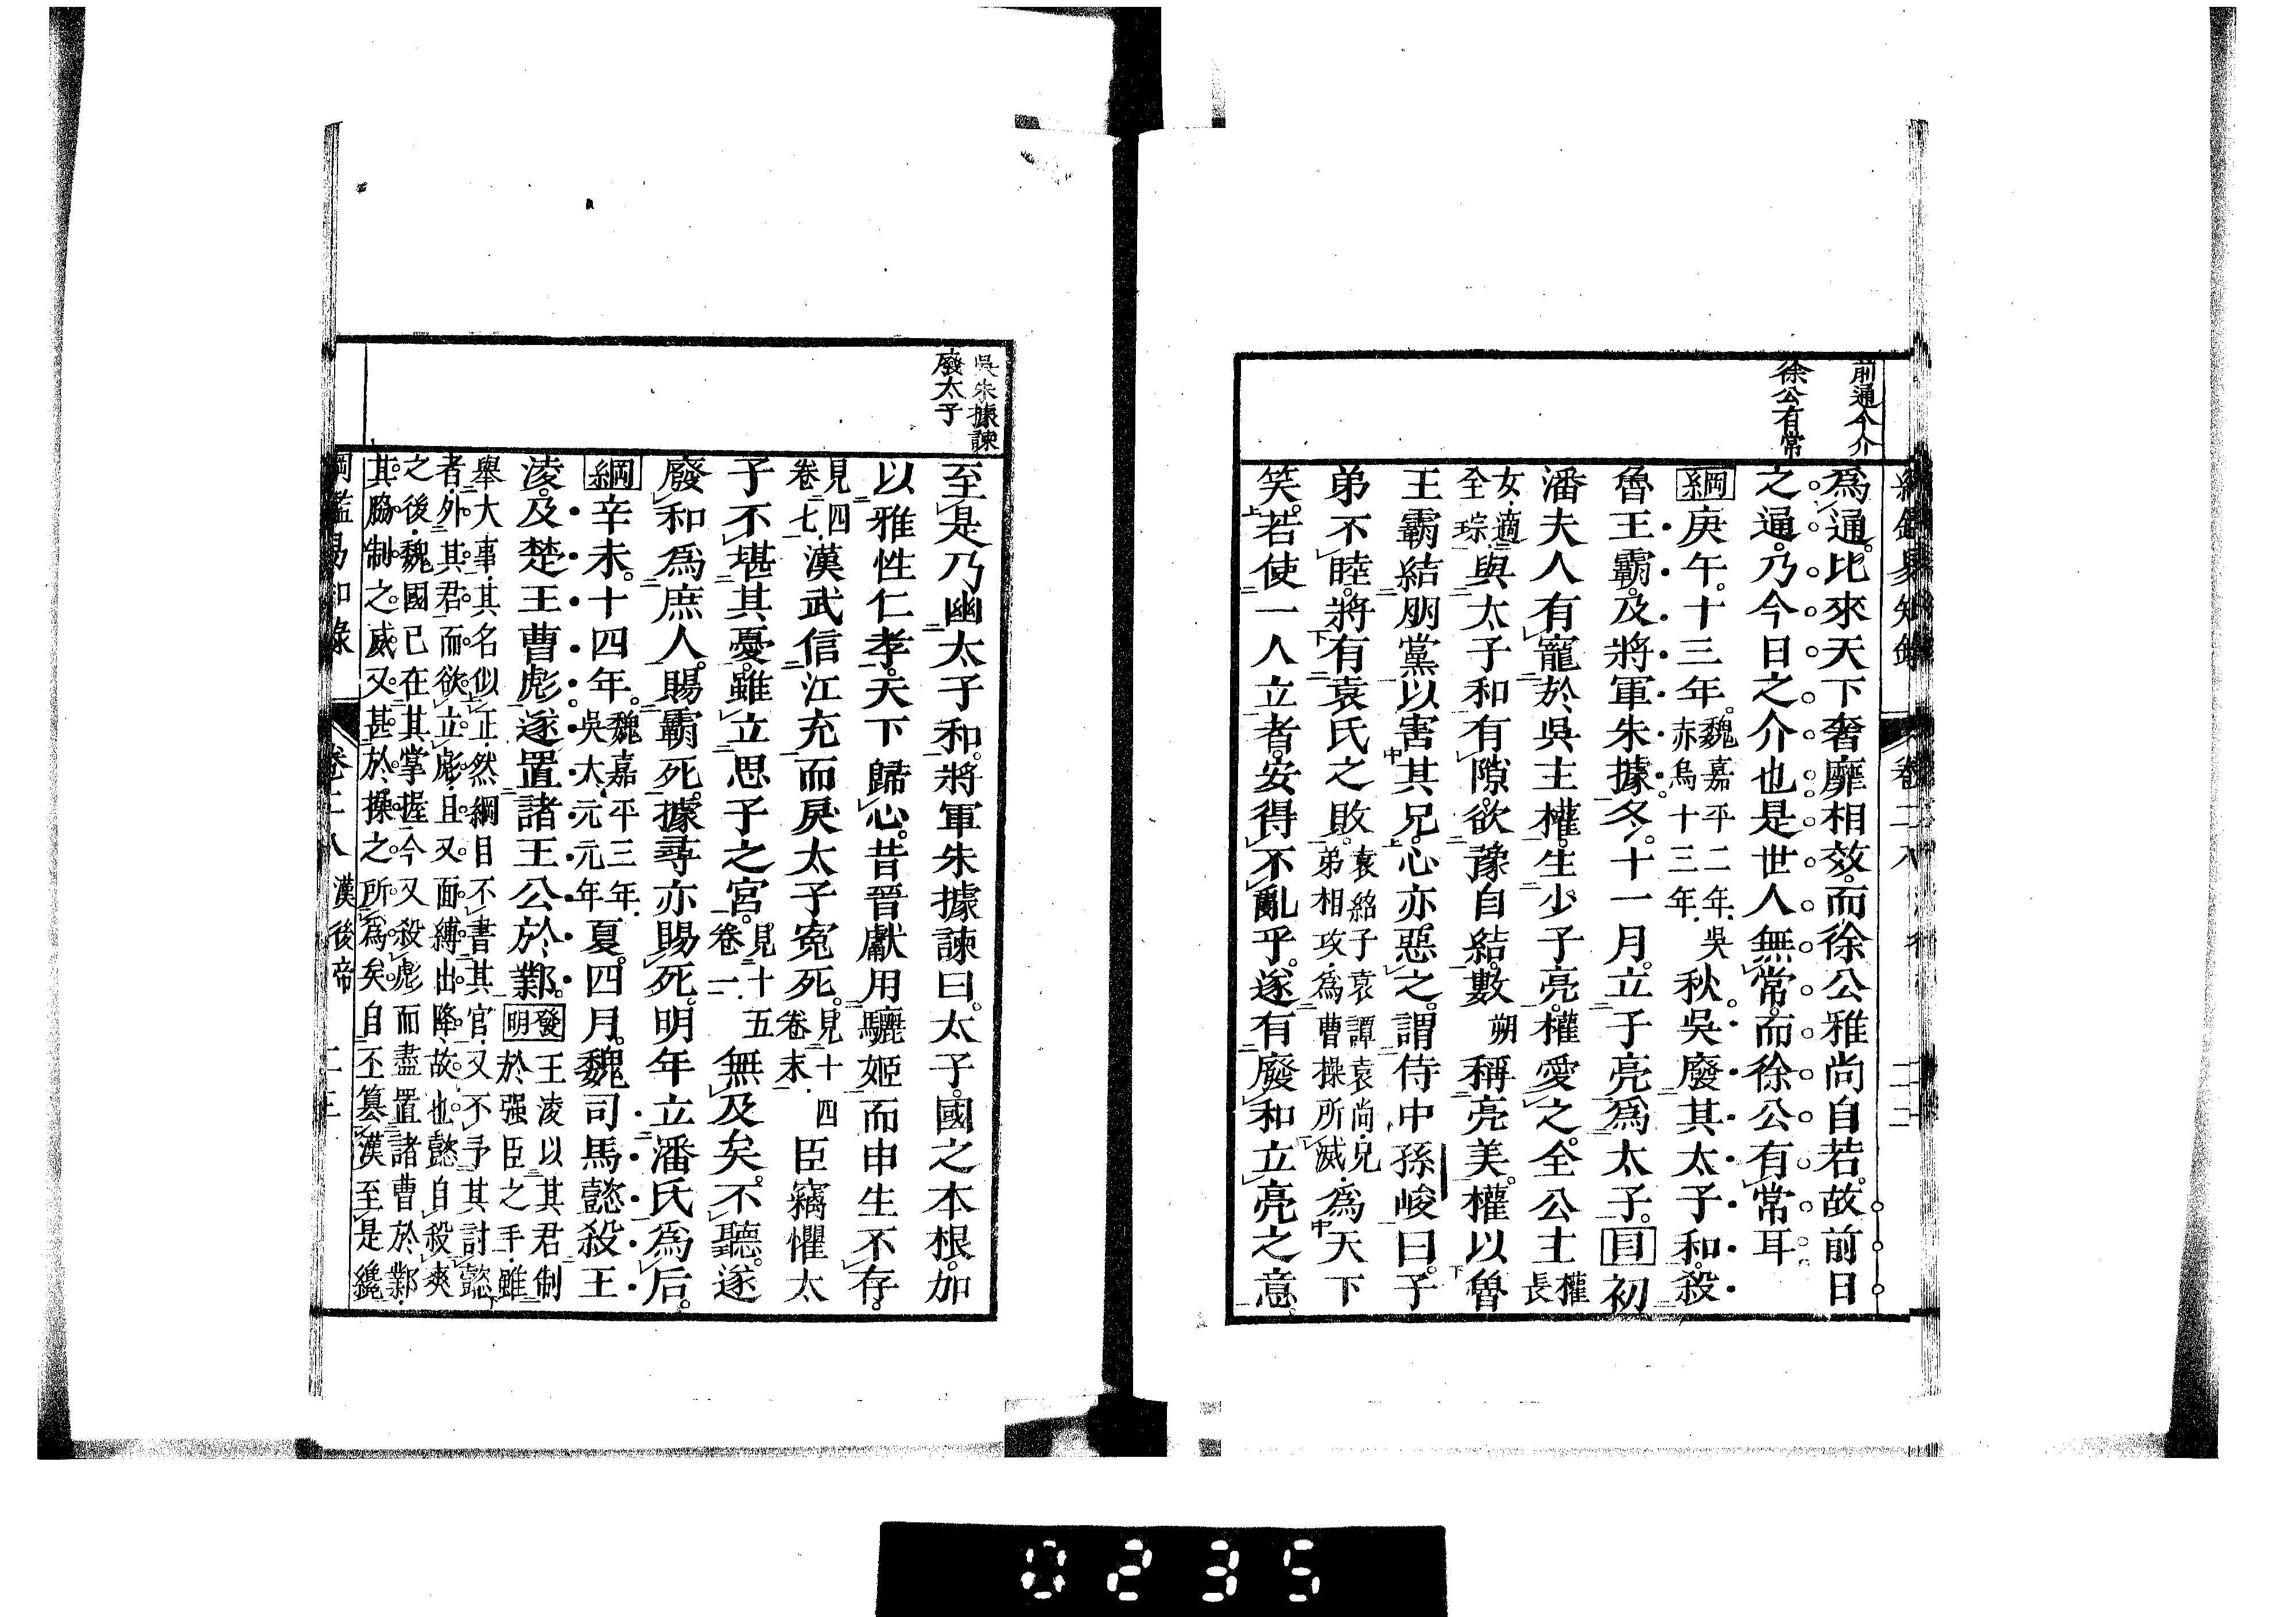 前通今介
徐公有常
為通。比來天下奢靡相效。而徐公雅尚自若。故前日
之通。乃今日之介也是世人無常。而徐公有常耳
綱庚午。十三年。魏嘉平二年。吳赤烏十三年。秋。吳廢其太子和。殺
魯王霸。及將軍朱據。冬。十一月。立子亮為太子。目初
潘夫人有寵於吳主權。生少子亮。權愛之。全公主權長
女。適全琮。與太子和有隙欲豫自結。數朔稱亮美。權以魯
王霸結朋黨以害其兄。心亦惡之。謂侍中孫峻曰。子
弟不睦。將有袁氏之敗。袁紹子袁譚袁尚。兄弟相攻。為曹操所滅。為天下
笑。若使一人立者。安得不亂乎。遂有廢和立亮之意。
吳朱據諫
廢太子
至是乃幽太子和。將軍朱據諫曰。太子。國之本根。加
以雅性仁孝。天下歸心。昔晉獻用驪姬而申生不存。
見四卷七。漢武信江充而戾太子寃死。見十四卷末。臣竊懼太
子不堪其憂。雖立思子之宮。見十五卷一。無及矣。不聽。遂
廢和為庶人。賜霸死。據尋亦賜死。明年立潘氏為后。
綱辛未。十四年。魏嘉平三年。吳太元元年。夏。四月。魏司馬懿殺王
淩。及楚王曹彪。遂置諸王公於鄴。發明王淩以其君制於强臣之手。雖
舉大事。其名似正。然綱目不書其官。又不予其討懿
者。外其君。而欲立彪。且又面縛出降。故也。懿自殺爽
之後。魏國已在其掌握。今又殺彪而盡置諸曹於鄴。
其脇制之威。又甚於操之所為矣。自丕篡漢至是纔
綱鑑易知錄 卷二八 漢後帝 二三